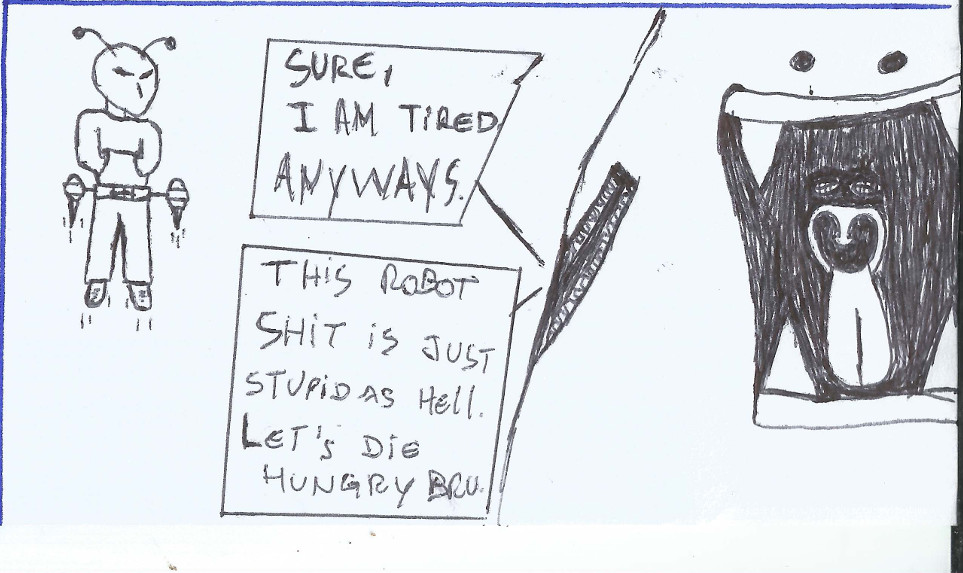 SURE,
I AM TIRED
ANYWAYS.
THIS ROBOT
SHIT IS JUST
STUPID AS HELL.
LET'S DIE
HUNGRY BRU.